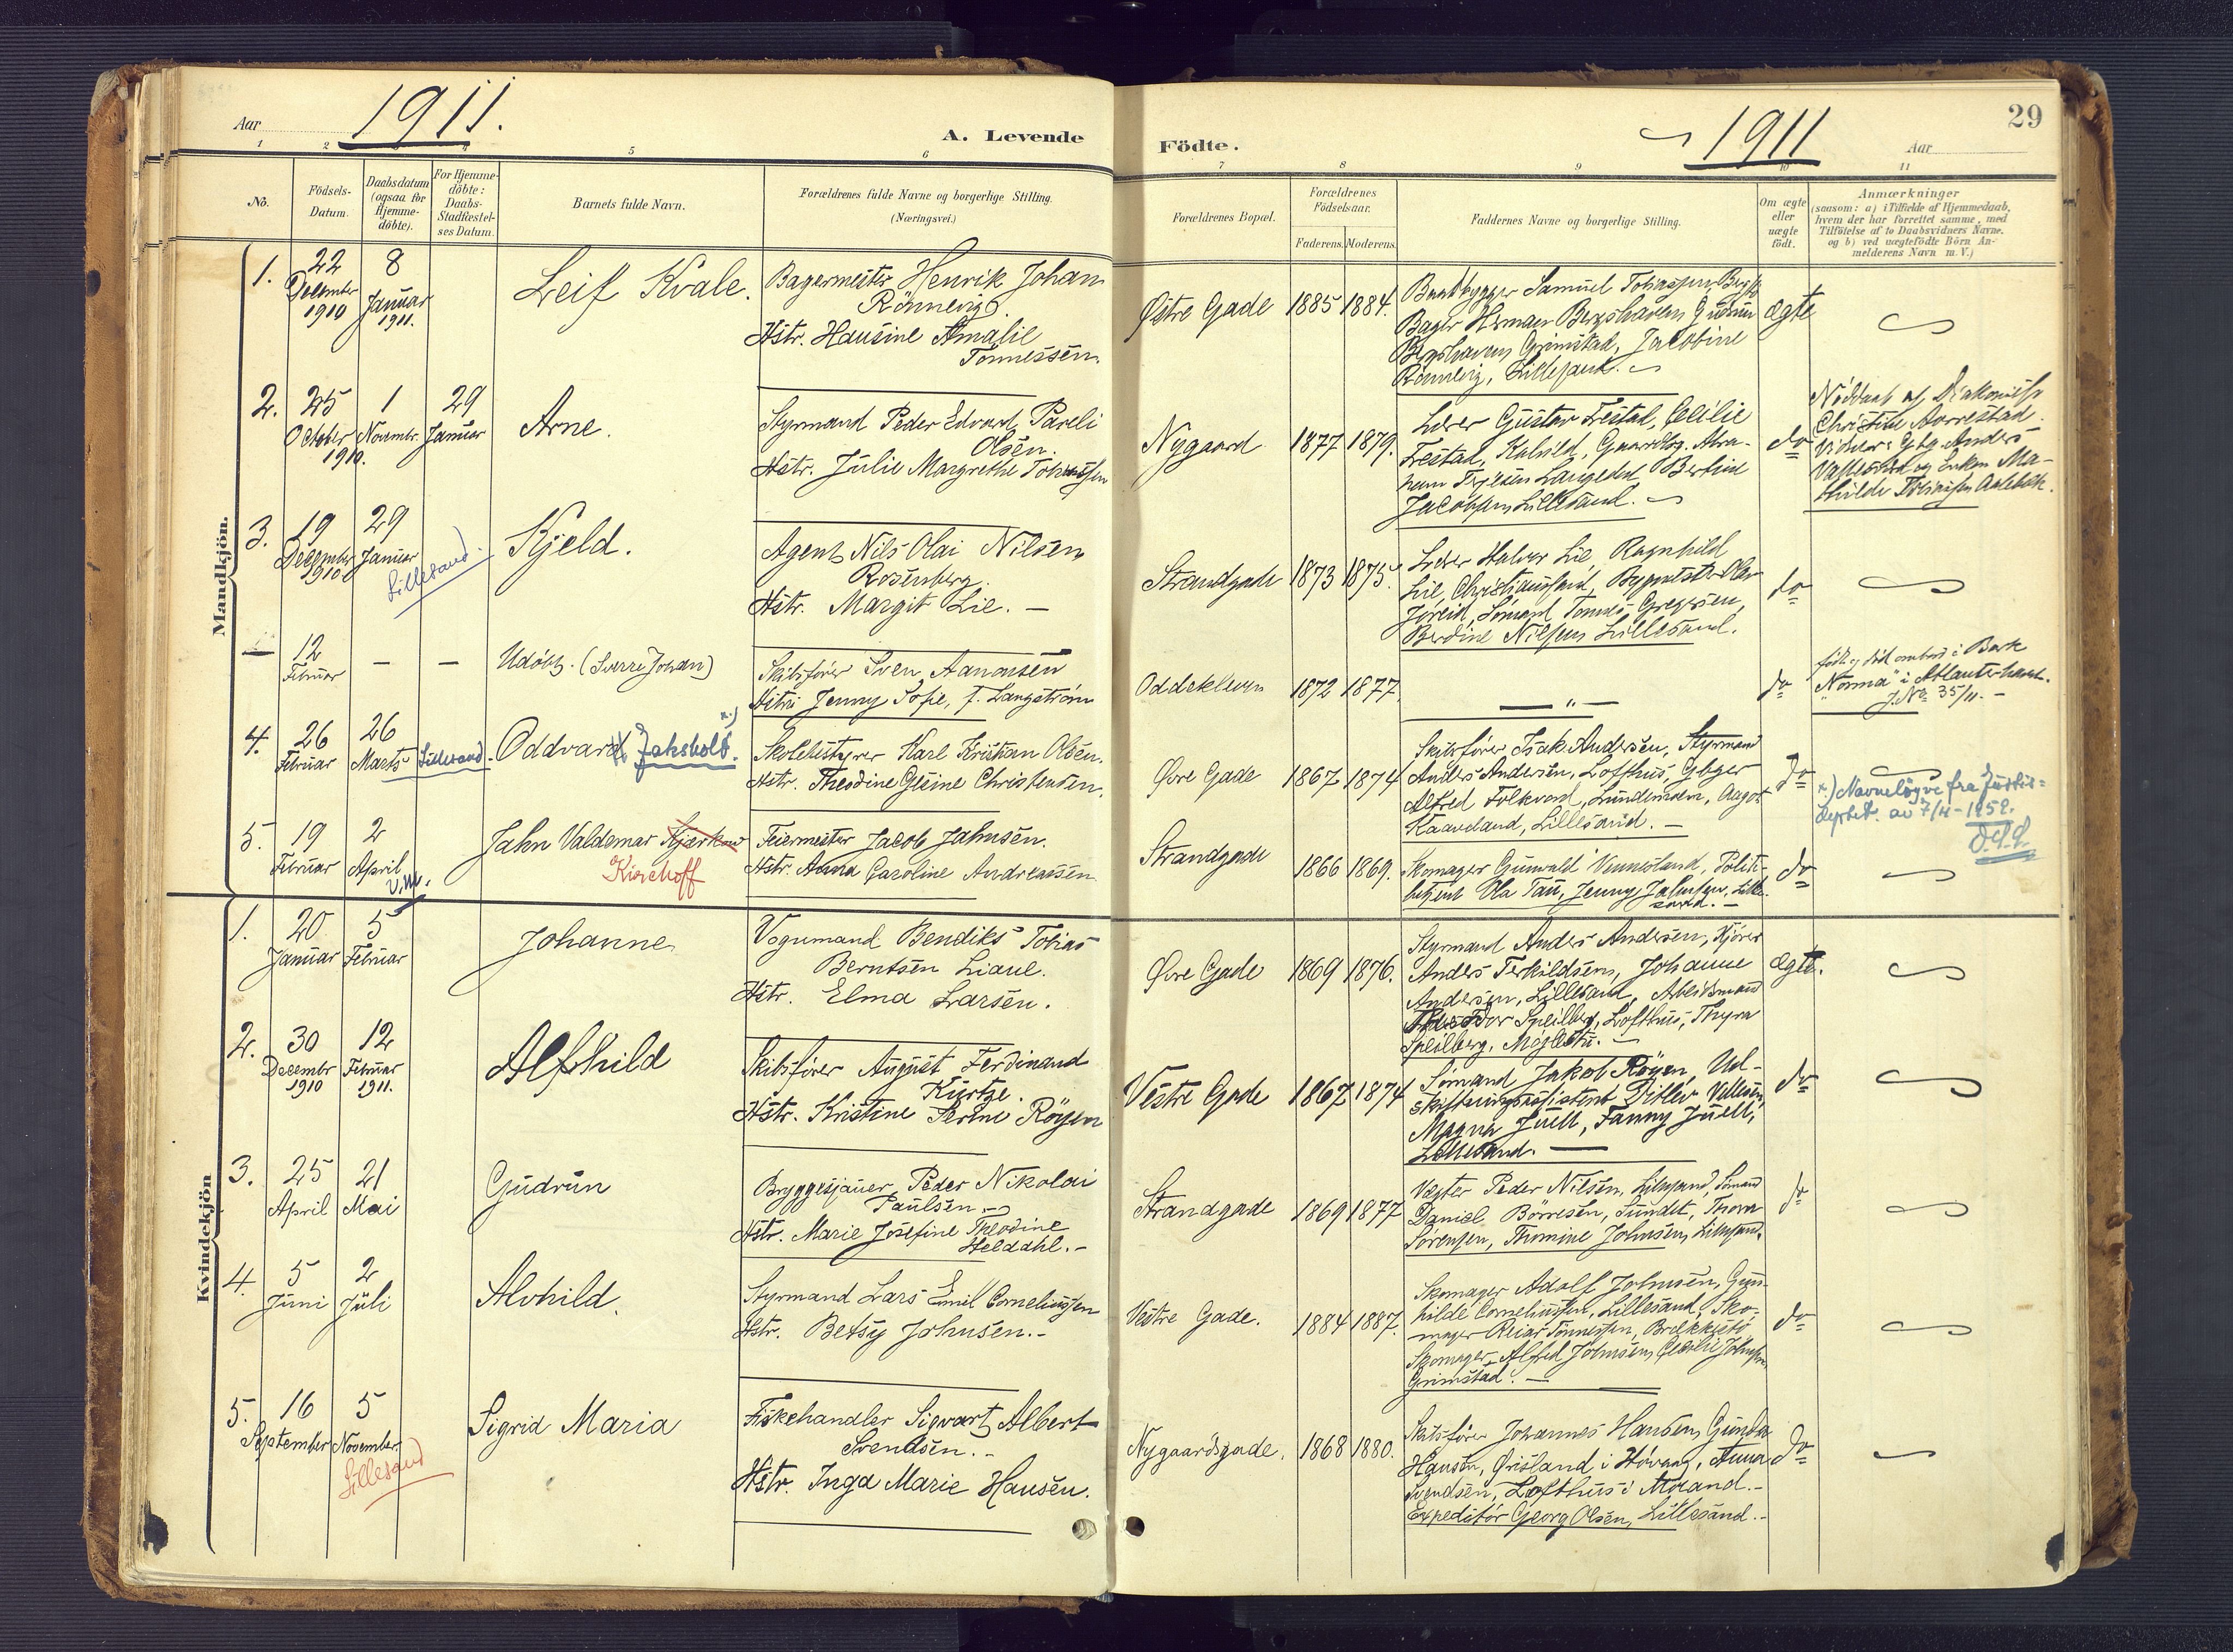 Aar 1911.
A. Levende
Födte.
1911
Aar
29
1 2 3 4 5 6
7 8 9 10 11
No.
Födsels-
Datum.
Daabsdatum
(ogsaa for
Hjemme-
döbte).
For Hjemme-
döbte:
Daabs-
Stadfæstel-
ses Datum.
Barnets fulde Navn.
Forældrenes fulde Navne og borgerlige Stilling.
(Næringsvei.)
Forældrenes Bopæl.
Forældrenes
Födselsaar.
Faderens. Moderens.
Faddernes Navne og borgerlige Stilling.
Om ægte
eller
uægte
födt.
Anmærkninger
(saasom: a) i Tilfælde af Hjemmedaab,
hvem der har forrettet samme, med
Tilföielse af to Daabsvidners Navne.
og b) ved uægtefödte Börn An-
melderens Navn m. V.)
Mandkjön.
1.
22
December
1910
8
Januar
1911.
Leif Kvale.
Bagermester Henrik Johan
Rönnevig.
Hstr. Hansine Amalie
Tönnessen.
Østre Gade
1885
1884.
Samuel
Bager Herman Bergshaven Gudrun
Bergshaven Grimstad, Jacobine
Rönnevig, Lillesand.
ægte
2.
25
October
1910.
1
Novembr.
29
Januar
Arne.
Styrmand Peder Edvard Pareli
Olsen.
Hstr. Julie Margrethe Tobiassen
Nygaard
1877
1879.
Lærer Gustav Frestad, Cecilie
Frestad, Kalvild, Gaardbg. Abra-
ham Terjesen Langedal, Bertine
Jacobsen Lillesand.
do
Nöddøbt af Diakonisse
Christine Aorrestad.
Vidner: Gbg. Anders
og Enken Ma-
thilde Tobiassen
3.
19
December
1910
29
Januar
Lillesand.
Kjeld.
Agent Nils Olai Nilsen
Rosenberg.
Hstr. Margit Lie.
Strandgade
1873
1875.
Lærer Halvor Lie, Ragnhild
Lie, Christianssand,
Sömand Tönnes Gregersen,
Berdine Nilsen Lillesand.
do
12
Februar
Udöbt. (Sverre Johan)
Skibsförer Sven Aanonsen
Hstr. Jenny Sofie, f. Langström
Oddekleven
1872
1877
do
födt og död ombord i Bark
"Norma" i Atlanterhavet.
J.No 35/11.
4.
26
Februar
26
Marts
Lillesand.
Oddvard Jaksholt. x.)
Skolebestyrer Karl Kristian Olsen.
Hstr. Theodine Christensen.
Øvre Gade
1867
1874
Skibsförer Isak Andersen, Styrmand
Anders Andersen, Lofthus, Gbger
Alfred Folkvord, Aagot
Kaaveland, Lillesand.
do
x.) Navneløyve fra Justis-
dept. av 7/4-1952.
5.
19
Februar
2
April
Jahn Valdemar
Kirchoff
Feiermester Jacob Jahnsen.
Hstr. Anna Caroline Andreassen
Strandgade
1866
1869.
Skomager Gunvald Vennesland, Politi-
betjent Ola Tau, Jenny Jahnsen, Lille-
sand.
do
Kvindekjön
1.
20
Januar
5
Februar
Johanne
Vognmand Bendiks Tobias
Berntsen Liane.
Hstr. Elma Larsen.
Øvre Gade
1869
1876.
Styrmand Anders Andersen, Kjörer
Anders Terkildsen, Johanne
Andersen, Lillesand, Arbeidsmand
Theodor Speilberg, Lofthus, Thyra
Speilberg, Møglestu.
ægte.
2.
30
Decembr
1910
12
Februar
1911.
Alfhild
Skibsförer August Ferdinand
Kurtze.
Hstr. Kristine Terine Röyen
Vestre Gade
1867
1874
Sömand Jakob Röyen, Ud-
skiftningsassistent Ditlev
Magna Juell, Fanny Juell,
Lillesand.
do
3.
25
April
21
Mai
Gudrun
Bryggesjauer Peder Nikolai
Paulsen
Hstr. Marie Josefine Theodine
Helddahl.
Strandgade
1869
1877
Vægter Peder Nilsen, Lillesand, Sömand
Daniel Börresen, Sundet, Thora
Sörensen, Thomine Johnsen, Lillesand.
do
4.
5
Juni
2
Juli
Alvhild.
Styrmand Lars Emil Corneliussen
Hstr. Betsy Johnsen.
Vestre Gade.
1884
1887.
Skomager Adolf Johnsen, Gun-
hilde Corneliussen, Lillesand, Sko-
mager Reiar Tönnessen, Brækkestö
Skomager Alfred Johnsen, Cecilie Johnsen
Grimstad.
do
5.
16
September
5
November.
Lillesand
Sigrid Maria
Fiskehandler Sigvart Albert
Svendsen.
Hstr. Inga Marie Hansen.
Nygaardsgade.
1868
1880.
Skibsförer Johannes Hansen, Gunda
Hansen, Grisland i Hövaag, Anna
Svendsen, Lofthus i Moland.
Expeditör Georg Olsen, Lillesand.
do